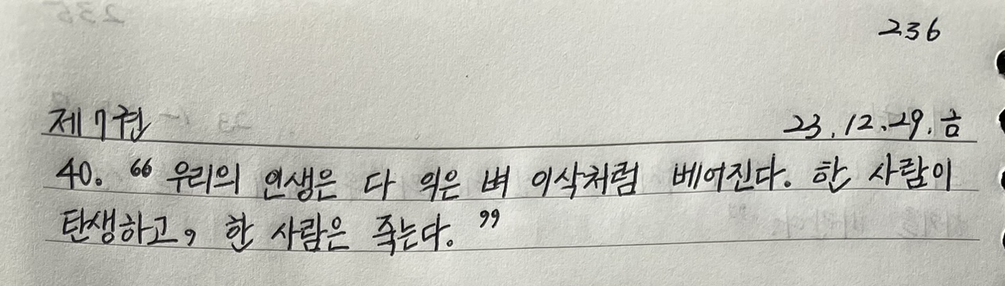 236
제7권 23.12.29.금
40. “우리의 인생은 다 익은 벼 이삭처럼 베어진다. 한 사람이
탄생하고, 한 사람은 죽는다.”